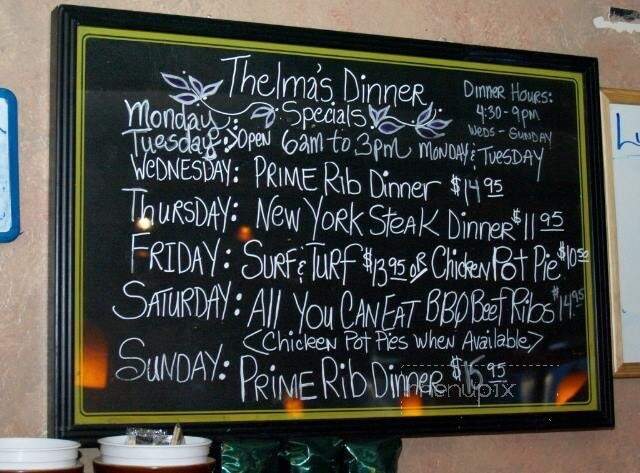 Thelma's Dinner
Specials
Dinner Hours:
4:30-9pm
Weds - Sunday
Monday:
Tuesday: >Open 6am to 3pm Monday & Tuesday
Wednesday: Prime Rib Dinner $14.95
Thursday: New York Steak Dinner $11.95
Friday: Surf & Turf $13.95 or Chicken Pot Pie $10.50
Saturday: All You Can Eat BBQ Beef Ribs $14.95
<Chicken Pot Pies When Available>
Sunday: Prime Rib Dinner $15.95
menupix